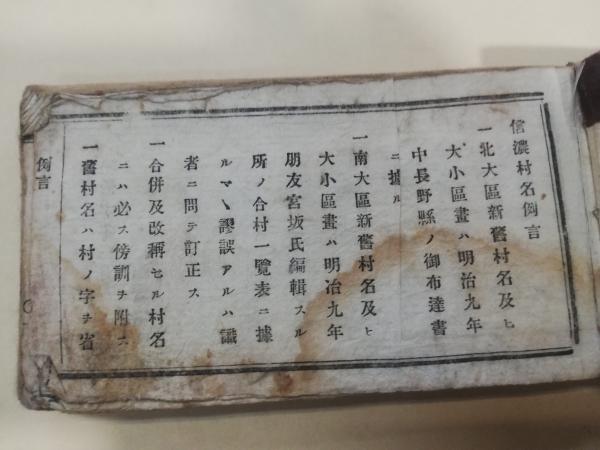 信濃村名例言
一北大區新舊村名及ヒ
大小區畫ハ明治九年
中長野縣ノ御布達書
ニ據ル
一南大區新舊村名及ヒ
大小區畫ハ明治九年
朋友宮坂氏編輯スル
所ノ合村一覽表ニ據
ルマヽ謬誤アルハ識
者ニ問テ訂正ス
一合併及改稱セル村名
ニハ必ス傍訓ヲ附ス
一舊村名ハ村ノ字ヲ省
例言